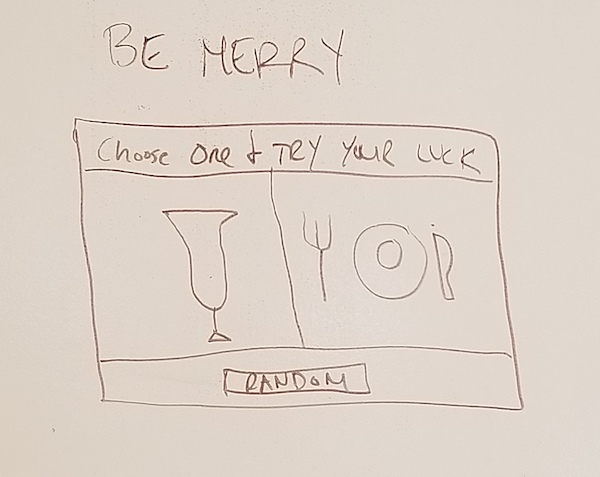 BE MERRY
Choose One & TRY YOUR LUCK
RANDOM